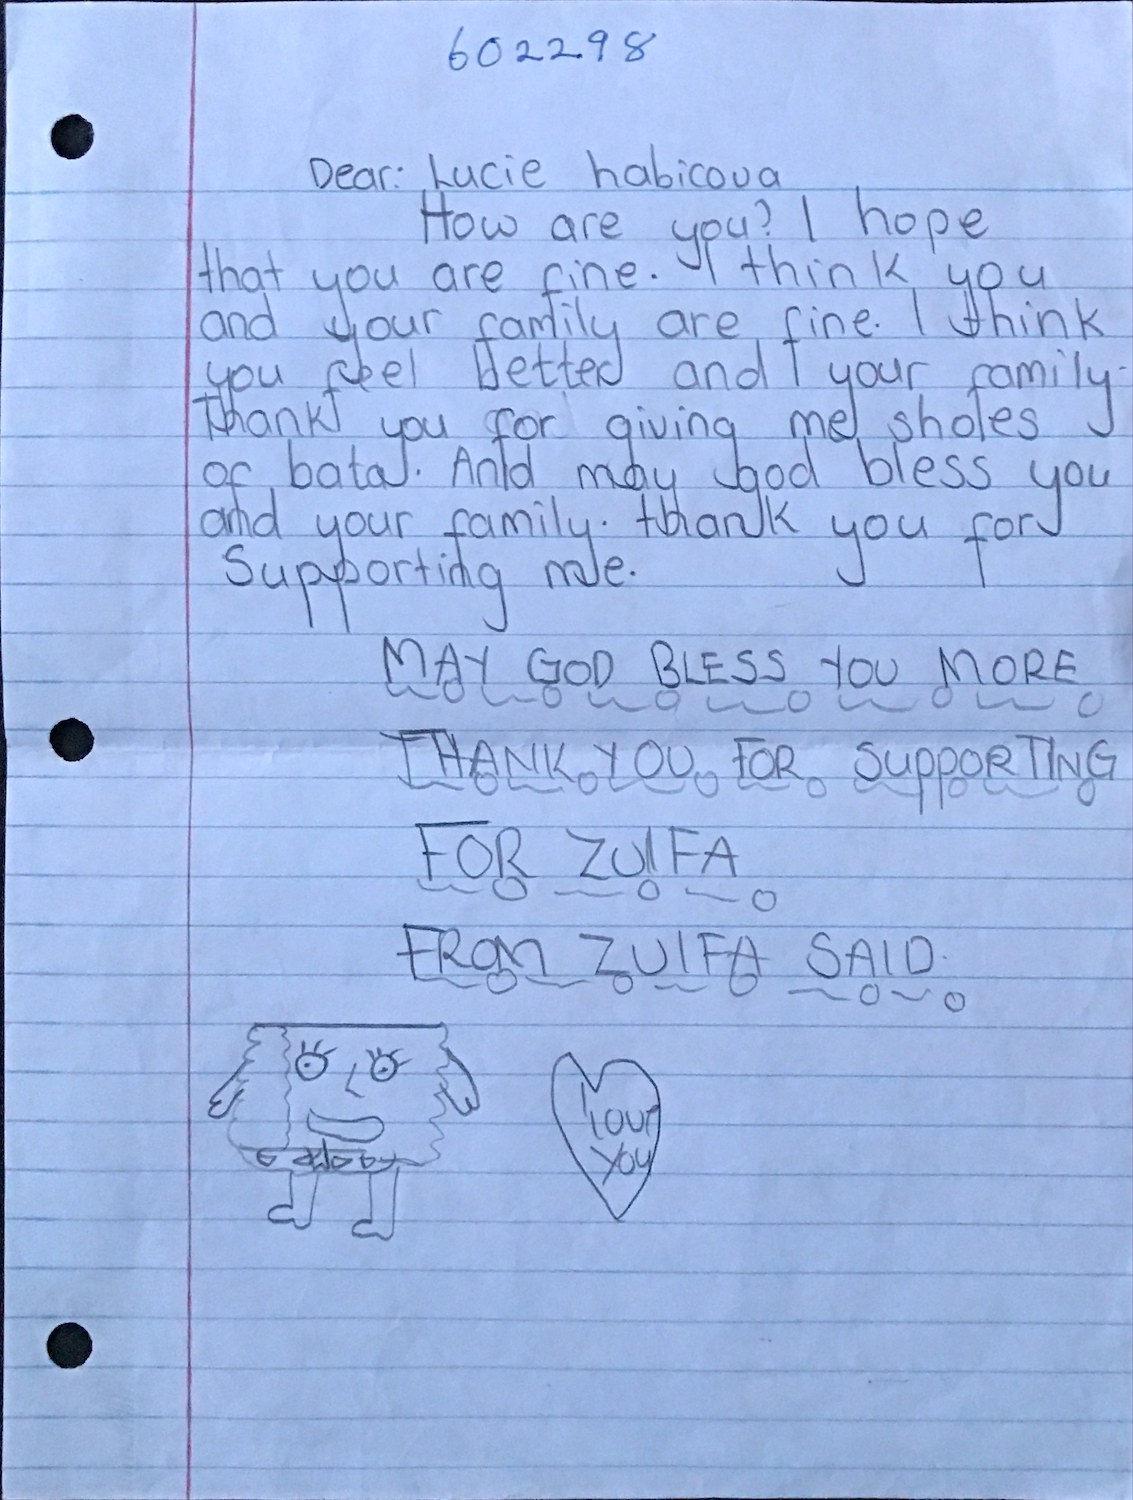 602298
Dear: Lucie habicova
How are you? I hope
that you are fine. I think you
and your family are fine. I think
you feel betted and your family.
Thank you for giving me sholes
of bata. And may god bless you
and your family. thank you for
Supporting me.
MAY GOD BLESS YOU MORE
THANK YOU FOR SuppORTING
FOR ZUIFA
FROM ZUIFA SAID.
I
lour
you